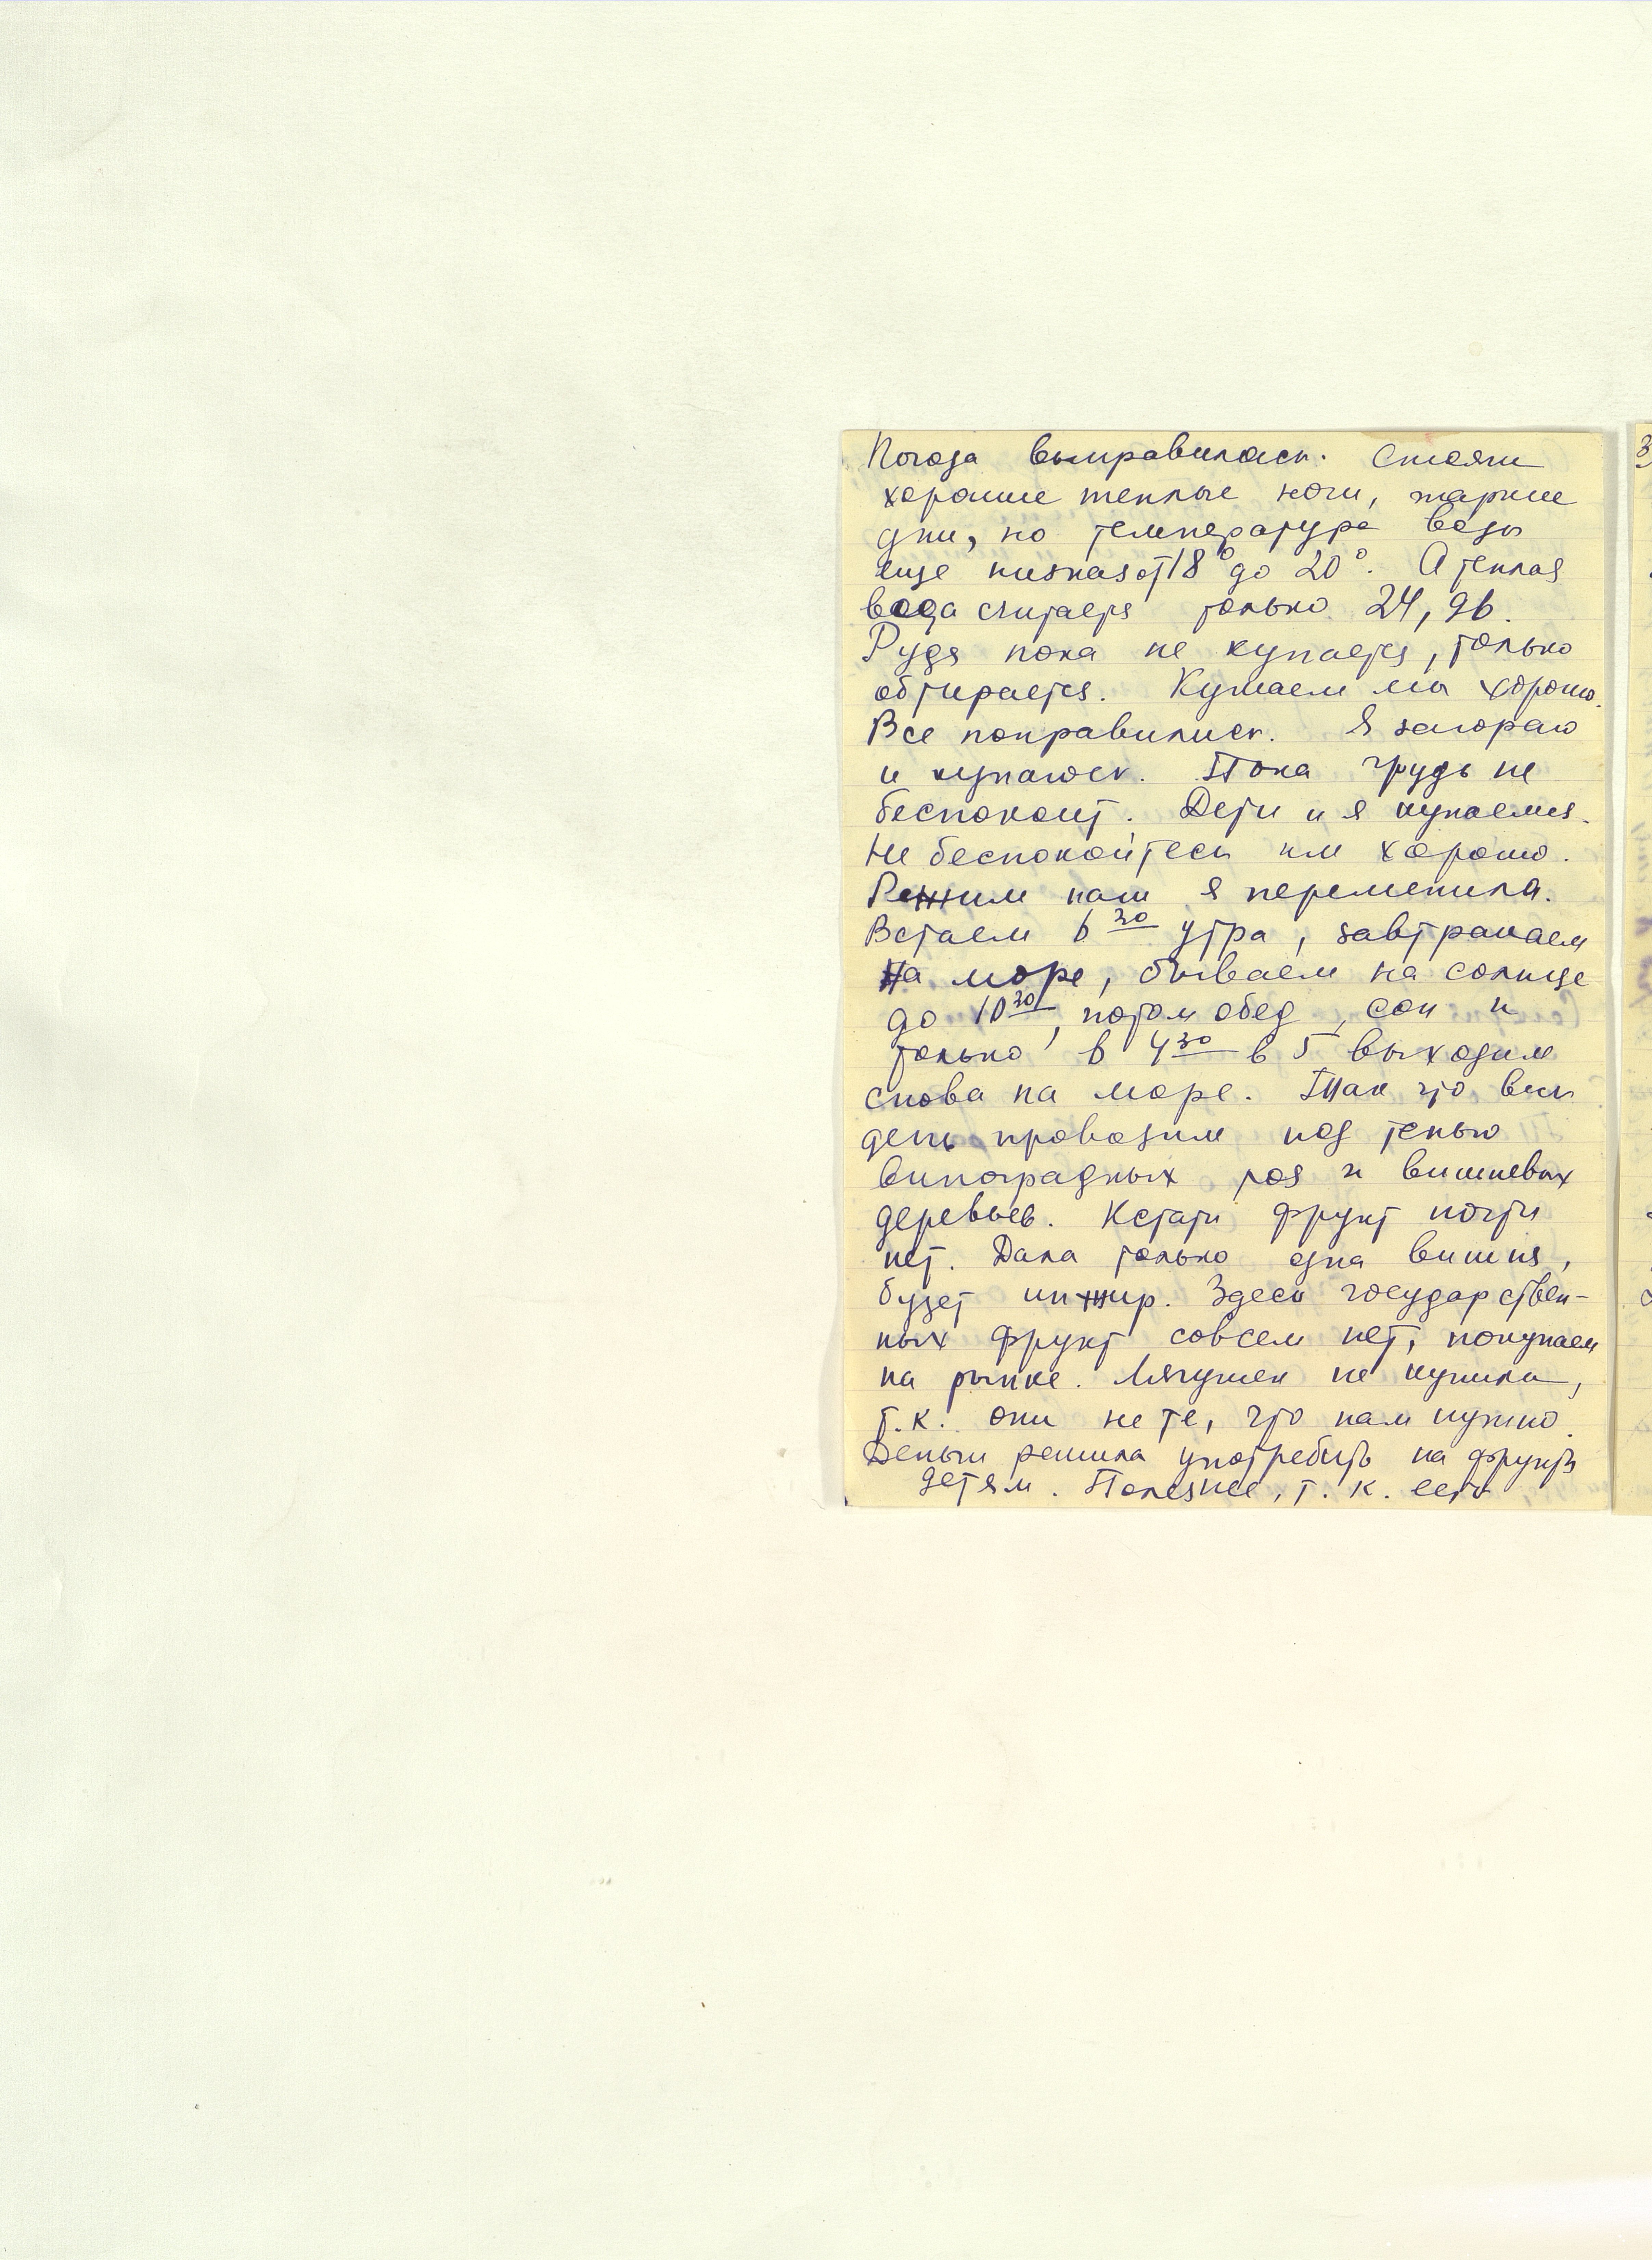 Погода выправилась. Стоят
хорошие теплые ночи, жаркие
дни, но температура воды
еще низкая от 18° до 20°. А теплая
вода считается только 24, 26.
Рудя пока не купается, только
обтирается. Кушаем мы хорошо.
Все поправились. Я загораю
и купаюсь. Пока грудь не
беспокоит. Дети и я купаемся.
Не беспокойтесь им хорошо.
Режим наш я переменила.
Встаем 6 30 утра, завтракаем
на море, бываем на солнце
до 10 30, потом обед, сон и
только в 4 30 в 5 выходим
снова на море. Так что весь
день проводим под тенью
виноградных лоз и вишневых
деревьев. Кстати фрукт почти
нет. Дала только одна вишня,
будет инжир. Здесь государствен-
ных фрукт совсем нет, покупаем
на рынке. Лягушек не купила,
т.к. они не те, что нам нужно.
Деньги решила употребить на фрукты
детям. Полезнее, т. к. есть